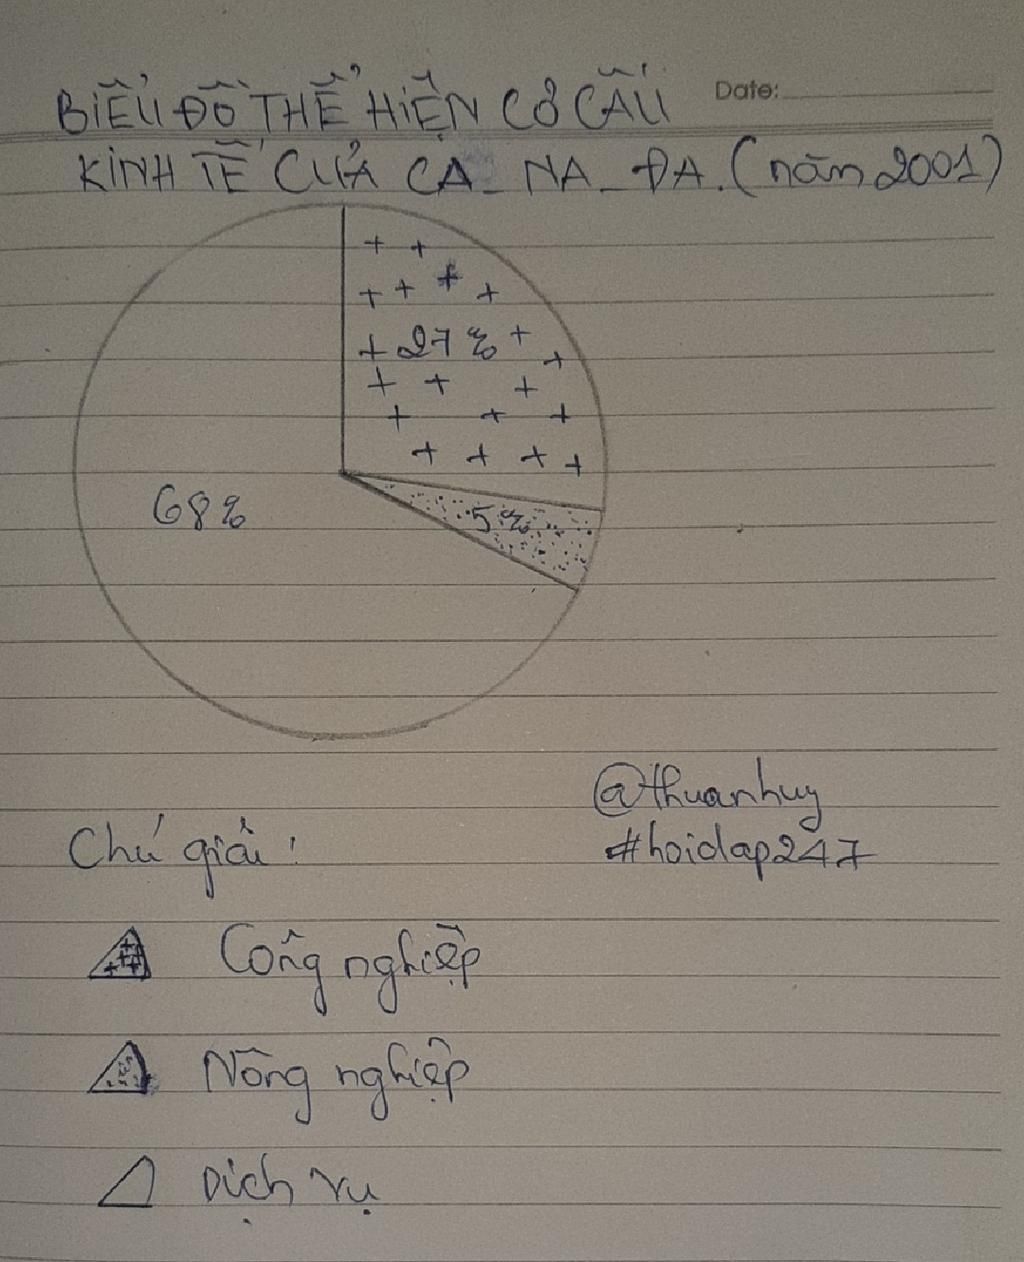 BIỂU ĐỒ THỂ HIỆN CƠ CẤU
Date:
KINH TẾ CỦA CA_NA_ĐA. (năm 2001)
27%
68%
5%
@thuanhuy
#hoidap247
Chú giải:
Công nghiệp
Nông nghiệp
Dịch vụ